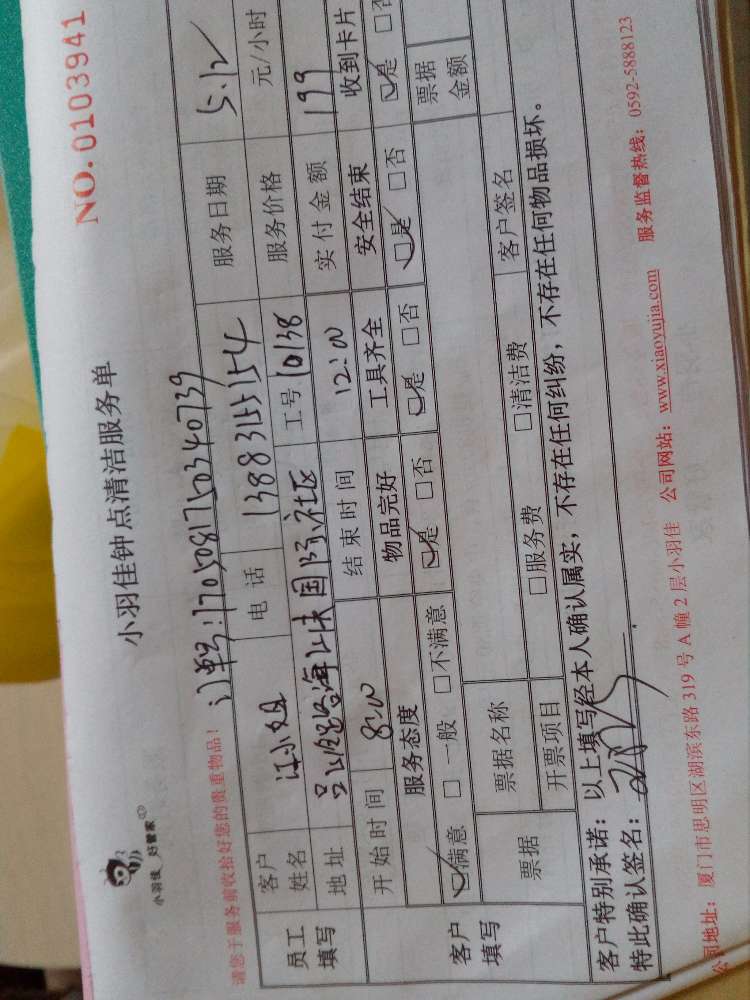 NO.0103941
小羽佳 好管家
小羽佳钟点清洁服务单
请您于服务前收拾好您的贵重物品！
订单号:1705081750340739
员工填写
客户姓名 江小姐 电话 13883155154 服务日期 5.12
地址 国际社区 工号 10138 服务价格 元/小时
开始时间 8:00 结束时间 12:00 实付金额 199
客户填写
服务态度 物品完好 工具齐全 安全结束 收到卡片
满意 □一般 □不满意 是 □否 是 □否 □是 □否 是 □否
票据 票据名称 票据金额
开票项目 □服务费 □清洁费 客户签名
客户特别承诺：以上填写经本人确认属实，不存在任何纠纷，不存在任何物品损坏。
特此确认签名：
公司地址：厦门市思明区湖滨东路 319 号 A 幢 2 层小羽佳 公司网站：www.xiaoyujia.com 服务监督热线：0592-5888123